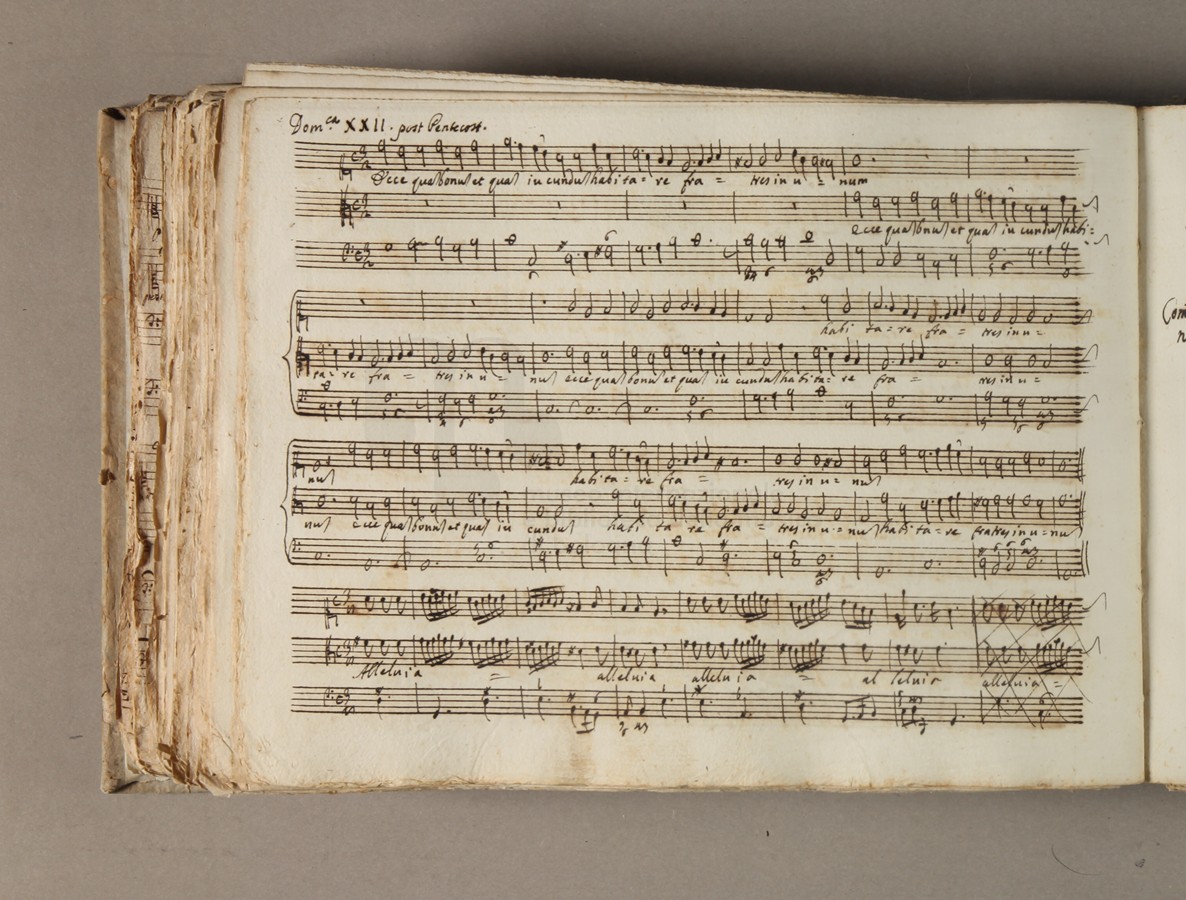 Dom.ca XXII. post Pentecost.
Ecce quabonuet quaſ iu cunduſ habita = re fra = tres in u = num
ecce quaſ bnuſ et quaſ iu cunduſ habi =
habi ta = re fra = tres in u =
ta = re fra = tres in u = nuſ ecce quaſ bonuſ et quaſ iu cunduſ habita = re fra = tres in u =
nuſ habita = re fra = tres in u = nuſ
nuſ ecce quaſ bonuſ et quaſ iu cunduſ habi ta re fra = tres in u = nuſ habi ta = re fratres in u = nuſ
Alleluia = alleluia alleluia = al leluia alleluia =
Com
n